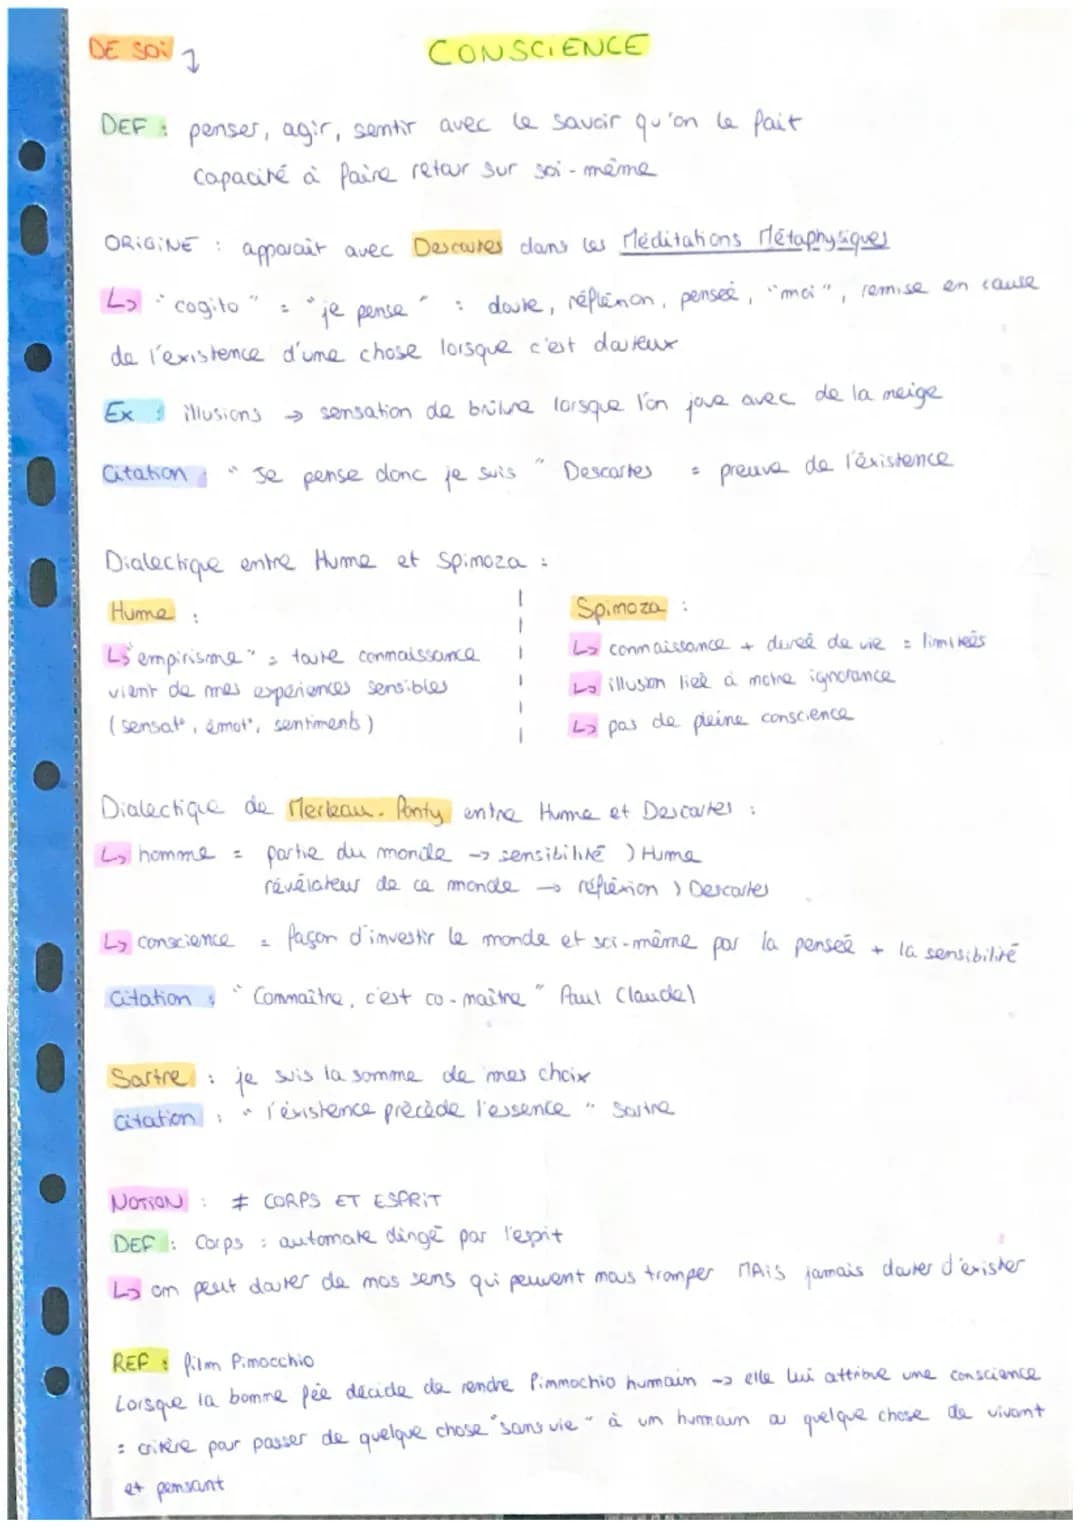 DE SOI
CONSCIENCE
DEF : penser, agir, sentir avec le savoir qu'on le fait
capacité à faire retour sur soi-même
ORIGINE : apparait avec Descartes dans les Méditations Métaphysiques
↳ "cogito" = "je pense" : doute, réflexion, pensée, "moi", remise en cause
de l'existence d'une chose lorsque c'est douteux
Ex : illusions → sensation de brûlure lorsque l'on joue avec de la neige
Citation : "Je pense donc je suis" Descartes = preuve de l'existence
Dialectique entre Hume et Spinoza :
Hume :
↳ "empirisme" = toute connaissance
vient de mes expériences sensibles
(sensat°, émot°, sentiments)
Spinoza :
↳ connaissance + durée de vie = limitées
↳ illusion liée à notre ignorance
↳ pas de pleine conscience
Dialectique de Merleau-Ponty entre Hume et Descartes :
↳ homme = partie du monde → sensibilité ) Hume
révélateur de ce monde → réflexion ) Descartes
↳ conscience = façon d'investir le monde et soi-même par la pensée + la sensibilité
Citation : "Connaître, c'est co-naître" Paul Claudel
Sartre : je suis la somme de mes choix
Citation : "l'existence précède l'essence" Sartre
NOTION : ≠ CORPS ET ESPRIT
DEF : Corps : automate dirigé par l'esprit
↳ on peut douter de nos sens qui peuvent nous tromper MAIS jamais douter d'exister
REF : film Pinocchio
Lorsque la bonne fée décide de rendre Pinnochio humain → elle lui attribue une conscience
= critère pour passer de quelque chose "sans vie" à un humain ou quelque chose de vivant
et pensant